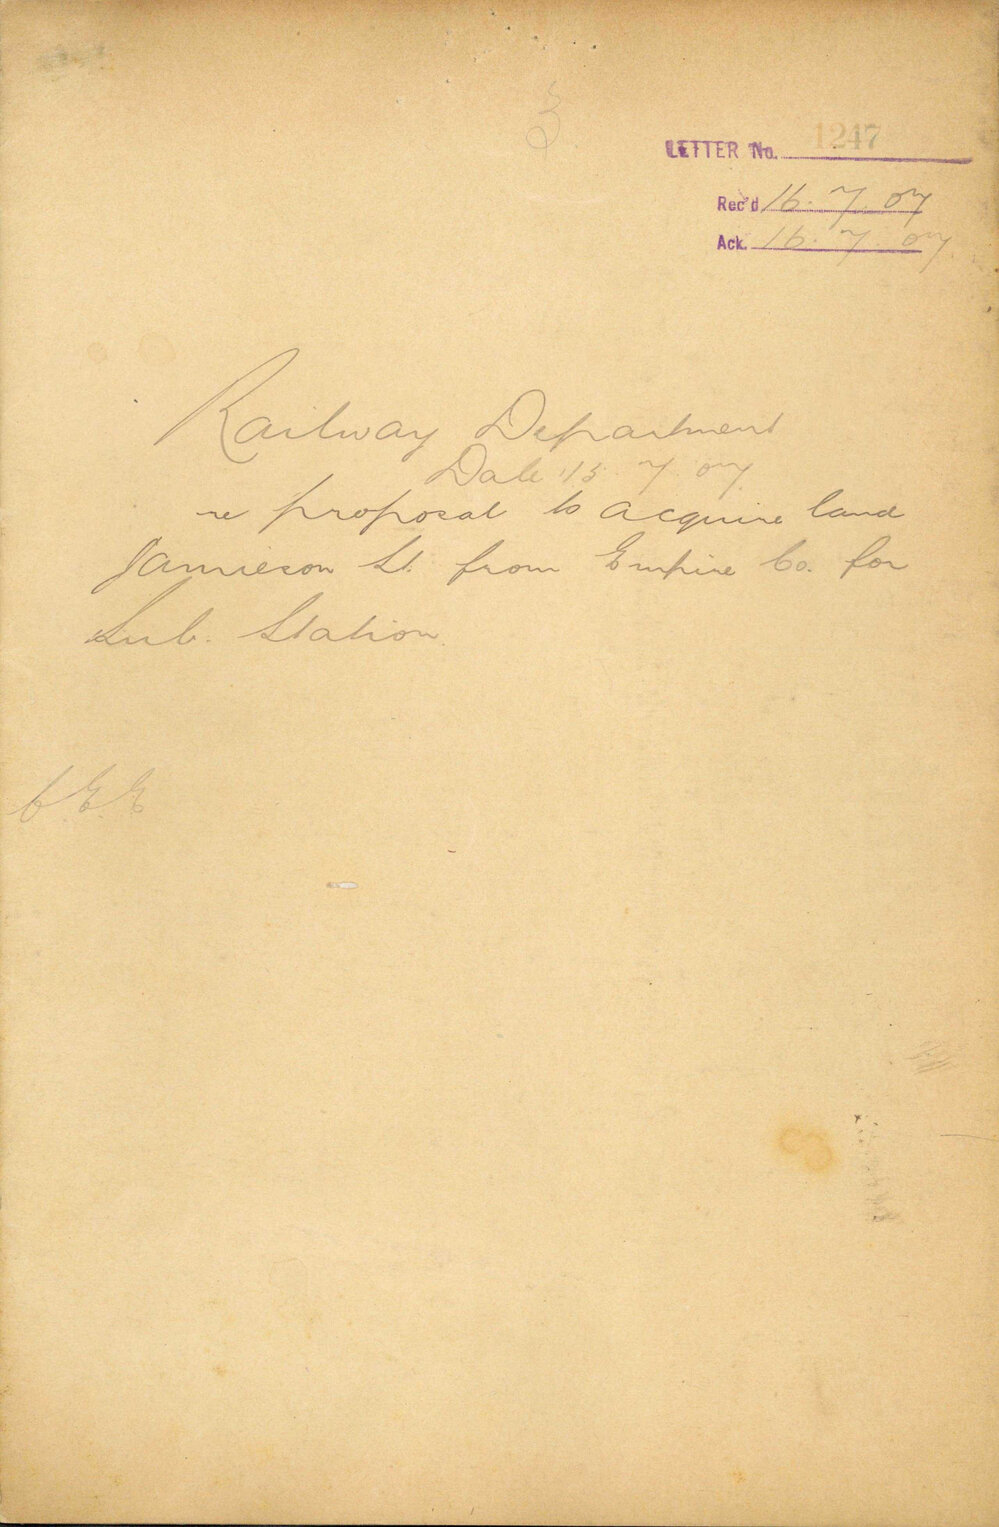 3
LETTER No. 1247
Rec'd 16. 7. 07
Ack. 16. 7. 07
Railway Department
Date 15. 7. 07
re proposal to acquire land
Jamieson St. from Empire Co. for
Sub. Station.
C.E.E